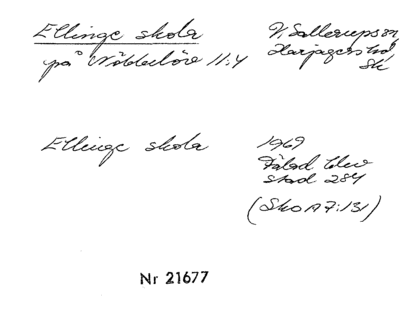 Ellinge skola V. Sallerups sn,
på Nöbbelöv 11:4 Harjagers hd,
Sk
Ellinge skola 1969
blev
stad 284
(Sko A 7:131)
Nr 21677